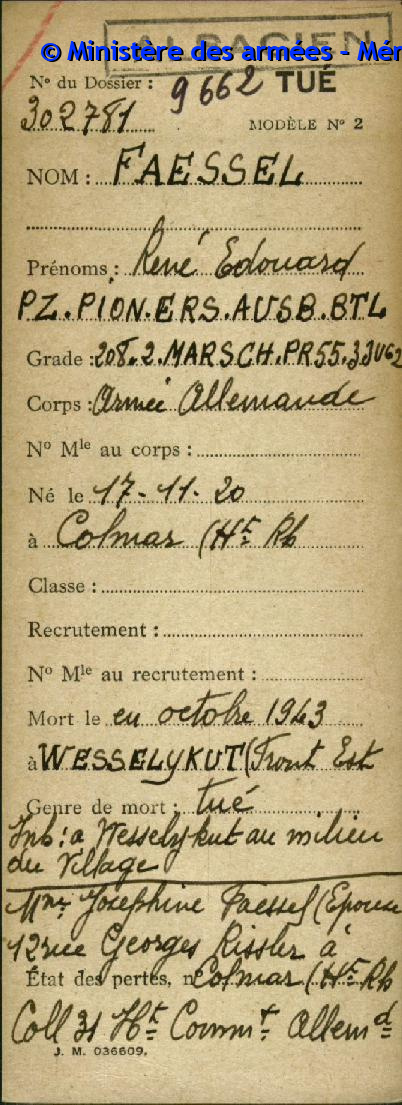 ALSACIEN
© Ministère des armées - Mém
N° du Dossier : 9662 TUÉ
302781
MODÈLE N° 2
NOM : FAESSEL
Prénoms : René Edouard
PZ.PION.ERS.AUSB.BTL
Grade : 208.2.MARSCH.PR55.33U62
Corps : Armée Allemande
N° Mle au corps :
Né le 17-11-20
à Colmar (Ht Rh
Classe :
Recrutement :
N° Mle au recrutement :
Mort le en octobre 1943
à WESSELYKUT (Front Est
Genre de mort : tué
Inh: a Wesselykut au milieu
du Village
Mme Josephine Faessel (Epouse
12 rue Georges Rissler à
État des pertes, n Colmar (Ht Rh
Coll 31 Ht Commt Allemd
J. M. 036609.